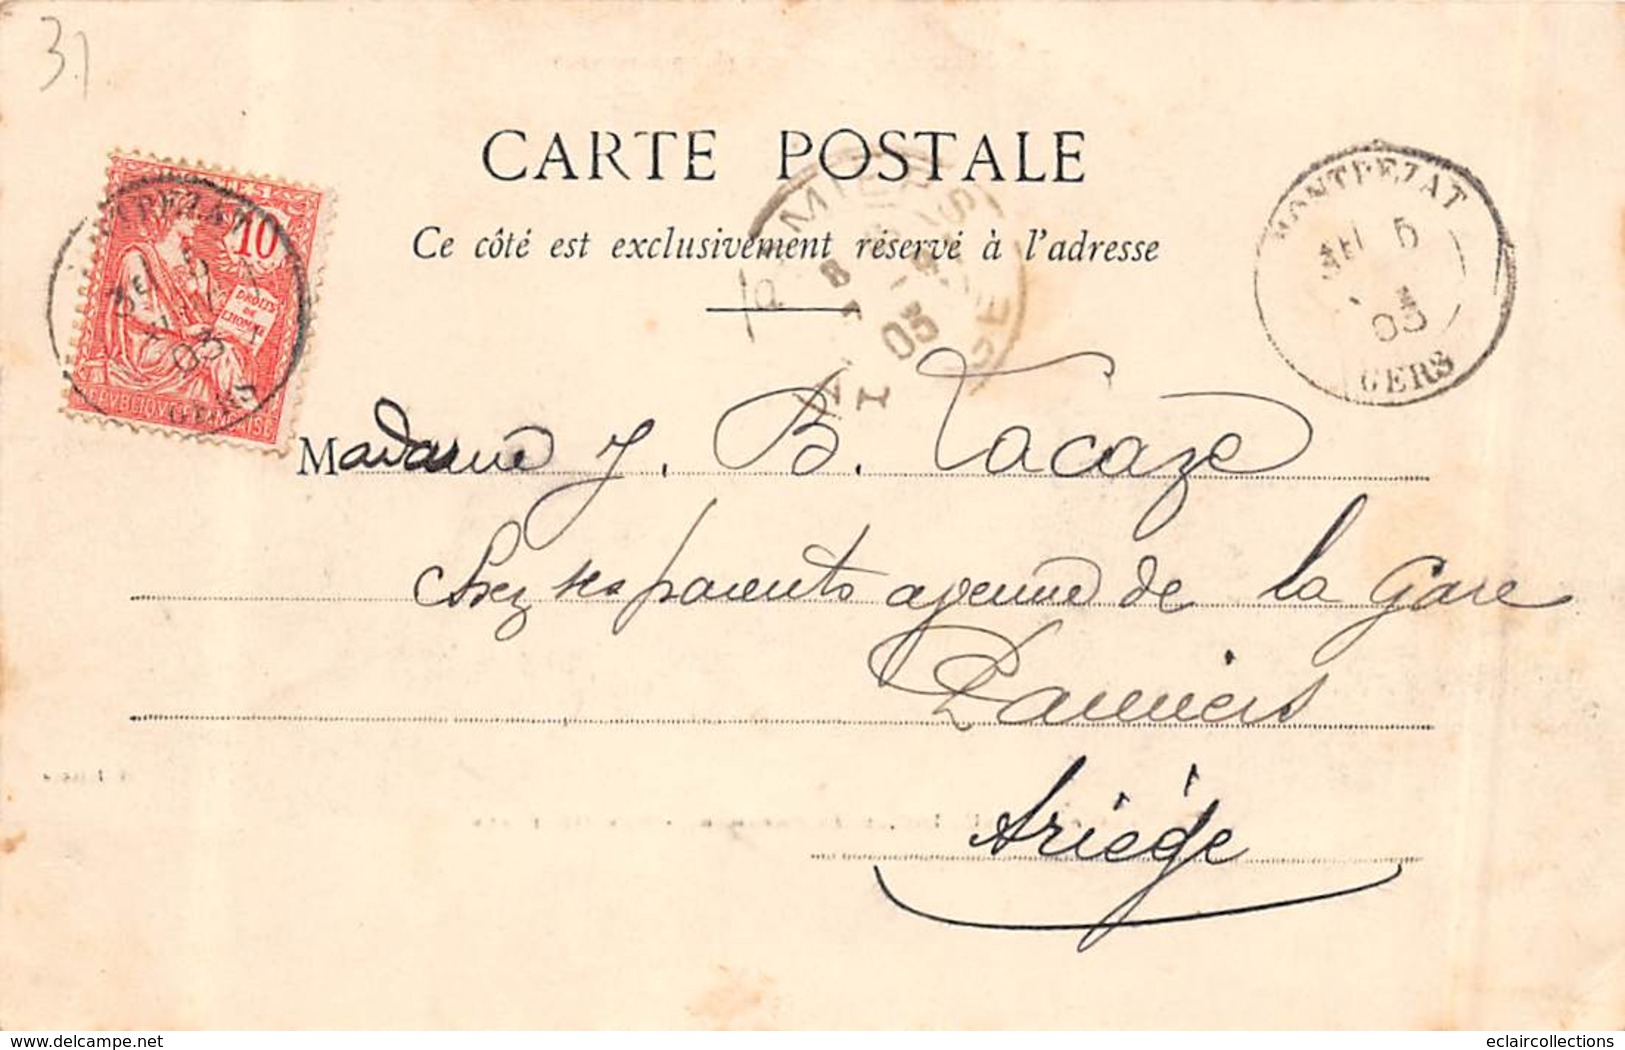 31
CARTE POSTALE
Ce côté est exclusivement réservé à l'adresse
10
DROITS
DE
L'HOMME
MONTPEZAT
5
03
GERS
8
03
Madame J. B. Lacaze
Chez ses parents avenue de la Gare
Pamiers
Ariège
eclaircollections